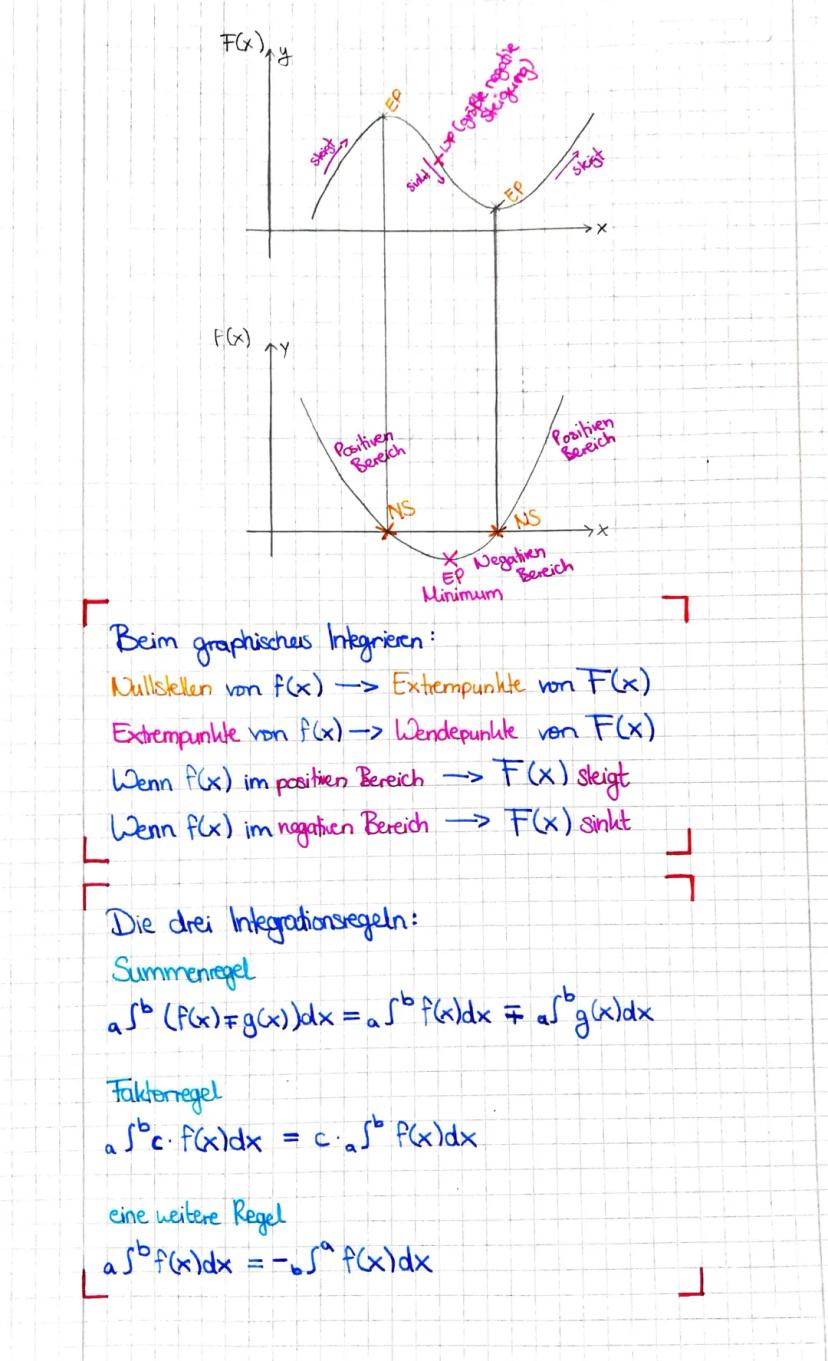 F(x) y
EP
WP (größte negative
Steigung)
steigt
sinkt
EP
steigt
x
f(x)
y
Positiven
Bereich
Positiven
Bereich
NS
NS
x
EP
Minimum
Negativen
Bereich
Beim graphisches Integrieren:
Nullstellen von f(x) —> Extrempunkte von F(x)
Extrempunkte von f(x) —> Wendepunkte von F(x)
Wenn f(x) im positiven Bereich —> F(x) steigt
Wenn f(x) im negativen Bereich —> F(x) sinkt
Die drei Integrationsregeln:
Summenregel
a∫b (f(x)∓g(x))dx = a∫b f(x)dx ∓ a∫b g(x)dx
Faktorregel
a∫b c · f(x)dx = c · a∫b f(x)dx
eine weitere Regel
a∫b f(x)dx = -b∫a f(x)dx